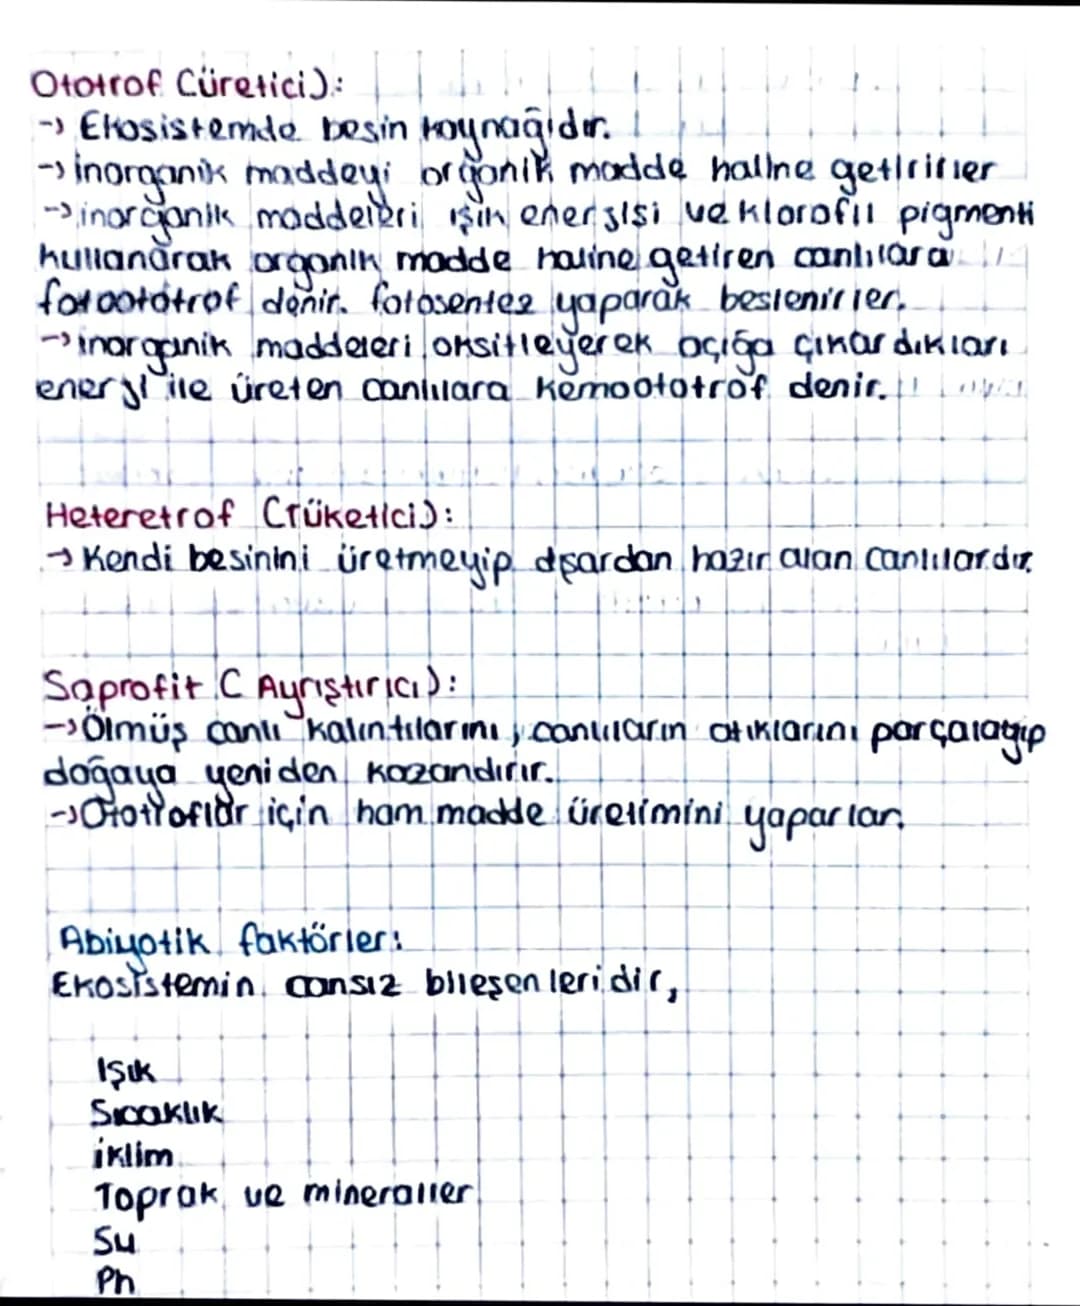 Ototrof (üretici):
→ Ekosistemde besin kaynağıdır.
→ inorganik maddeyi organik madde haline getirirler
→ inorganik maddeleri ışın enerjisi ve klorofil pigmenti
kullanarak organik madde haline getiren canlılara
fotoototrof denir. fotosentez yaparak beslenirler.
→ inorganik maddeleri oksitleyerek açığa çıkardıkları
enerji ile üreten canlılara kemoototrof denir.
Heteretrof (Tüketici):
→ Kendi besinini üretmeyip dışardan hazır alan canlılardır.
Saprofit (Ayrıştırıcı):
→ Ölmüş canlı kalıntılarını, canlıların atıklarını parçalayıp
doğaya yeniden kazandırır.
→ Ototroflar için ham madde üretimini yaparlar.
Abiyotik faktörler:
Ekosistemin cansız bileşenleridir,
Işık
Sıcaklık
iklim
Toprak ve mineraller
Su
Ph